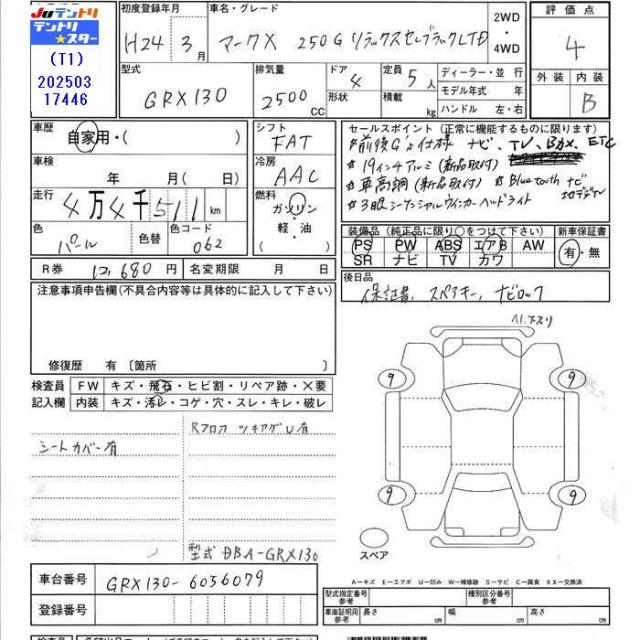 JUテントリ
テントリ★スター
(T1)
202503
17446
初度登録年月
H24 3月
車名・グレード
マークX 250G リラックスセレクブラックLTD
2WD・4WD
評価点
4
外装 内装
B
型式
GRX130
排気量
2500 CC
ドア 4
形状
定員 5人
積載 kg
ディーラー・並行
モデル年式 年
ハンドル 左・右
車歴
自家用・( )
車検
年 月( 日)
走行
4万4千511km
色
パール
色替
色コード
062
シフト
FAT
冷房
AAC
燃料
ガソリン
軽・油
( )
セールスポイント (正常に機能するものに限ります)
☆前後G's仕様 ナビ、TV、Bカメ、ETC
☆19インチアルミ(新品取付)
☆車高調(新品取付) ☆Bluetoothナビ
☆3眼シーケンシャルウインカーヘッドライト 地デジTV
装備品 (純正品に限り○をつけて下さい)
PS PW ABS エアB AW
SR ナビ TV カワ
新車保証書
有・無
R券 12,680円
名変期限 月 日
後日品
保証書、スペアキー、ナビロック
注意事項申告欄(不具合内容等は具体的に記入して下さい)
修復歴 有 〔箇所 〕
検査員記入欄
FW キズ・飛石・ヒビ割・リペア跡・×要
内装 キズ・汚レ・コゲ・穴・スレ・キレ・破レ
シートカバー有
Rフロア ツキアゲU有
型式 DBA-GRX130
ハ.下スリ
9
9
9
9
スペア
A−キズ E−エクボ U−凹み W−補修跡 S−サビ C−腐食 XX−交換済
車台番号
GRX130-6056079
登録番号
型式指定番号 参考
種別区分番号 参考
車庫証明用 参考
長さ cm
幅 cm
高さ cm